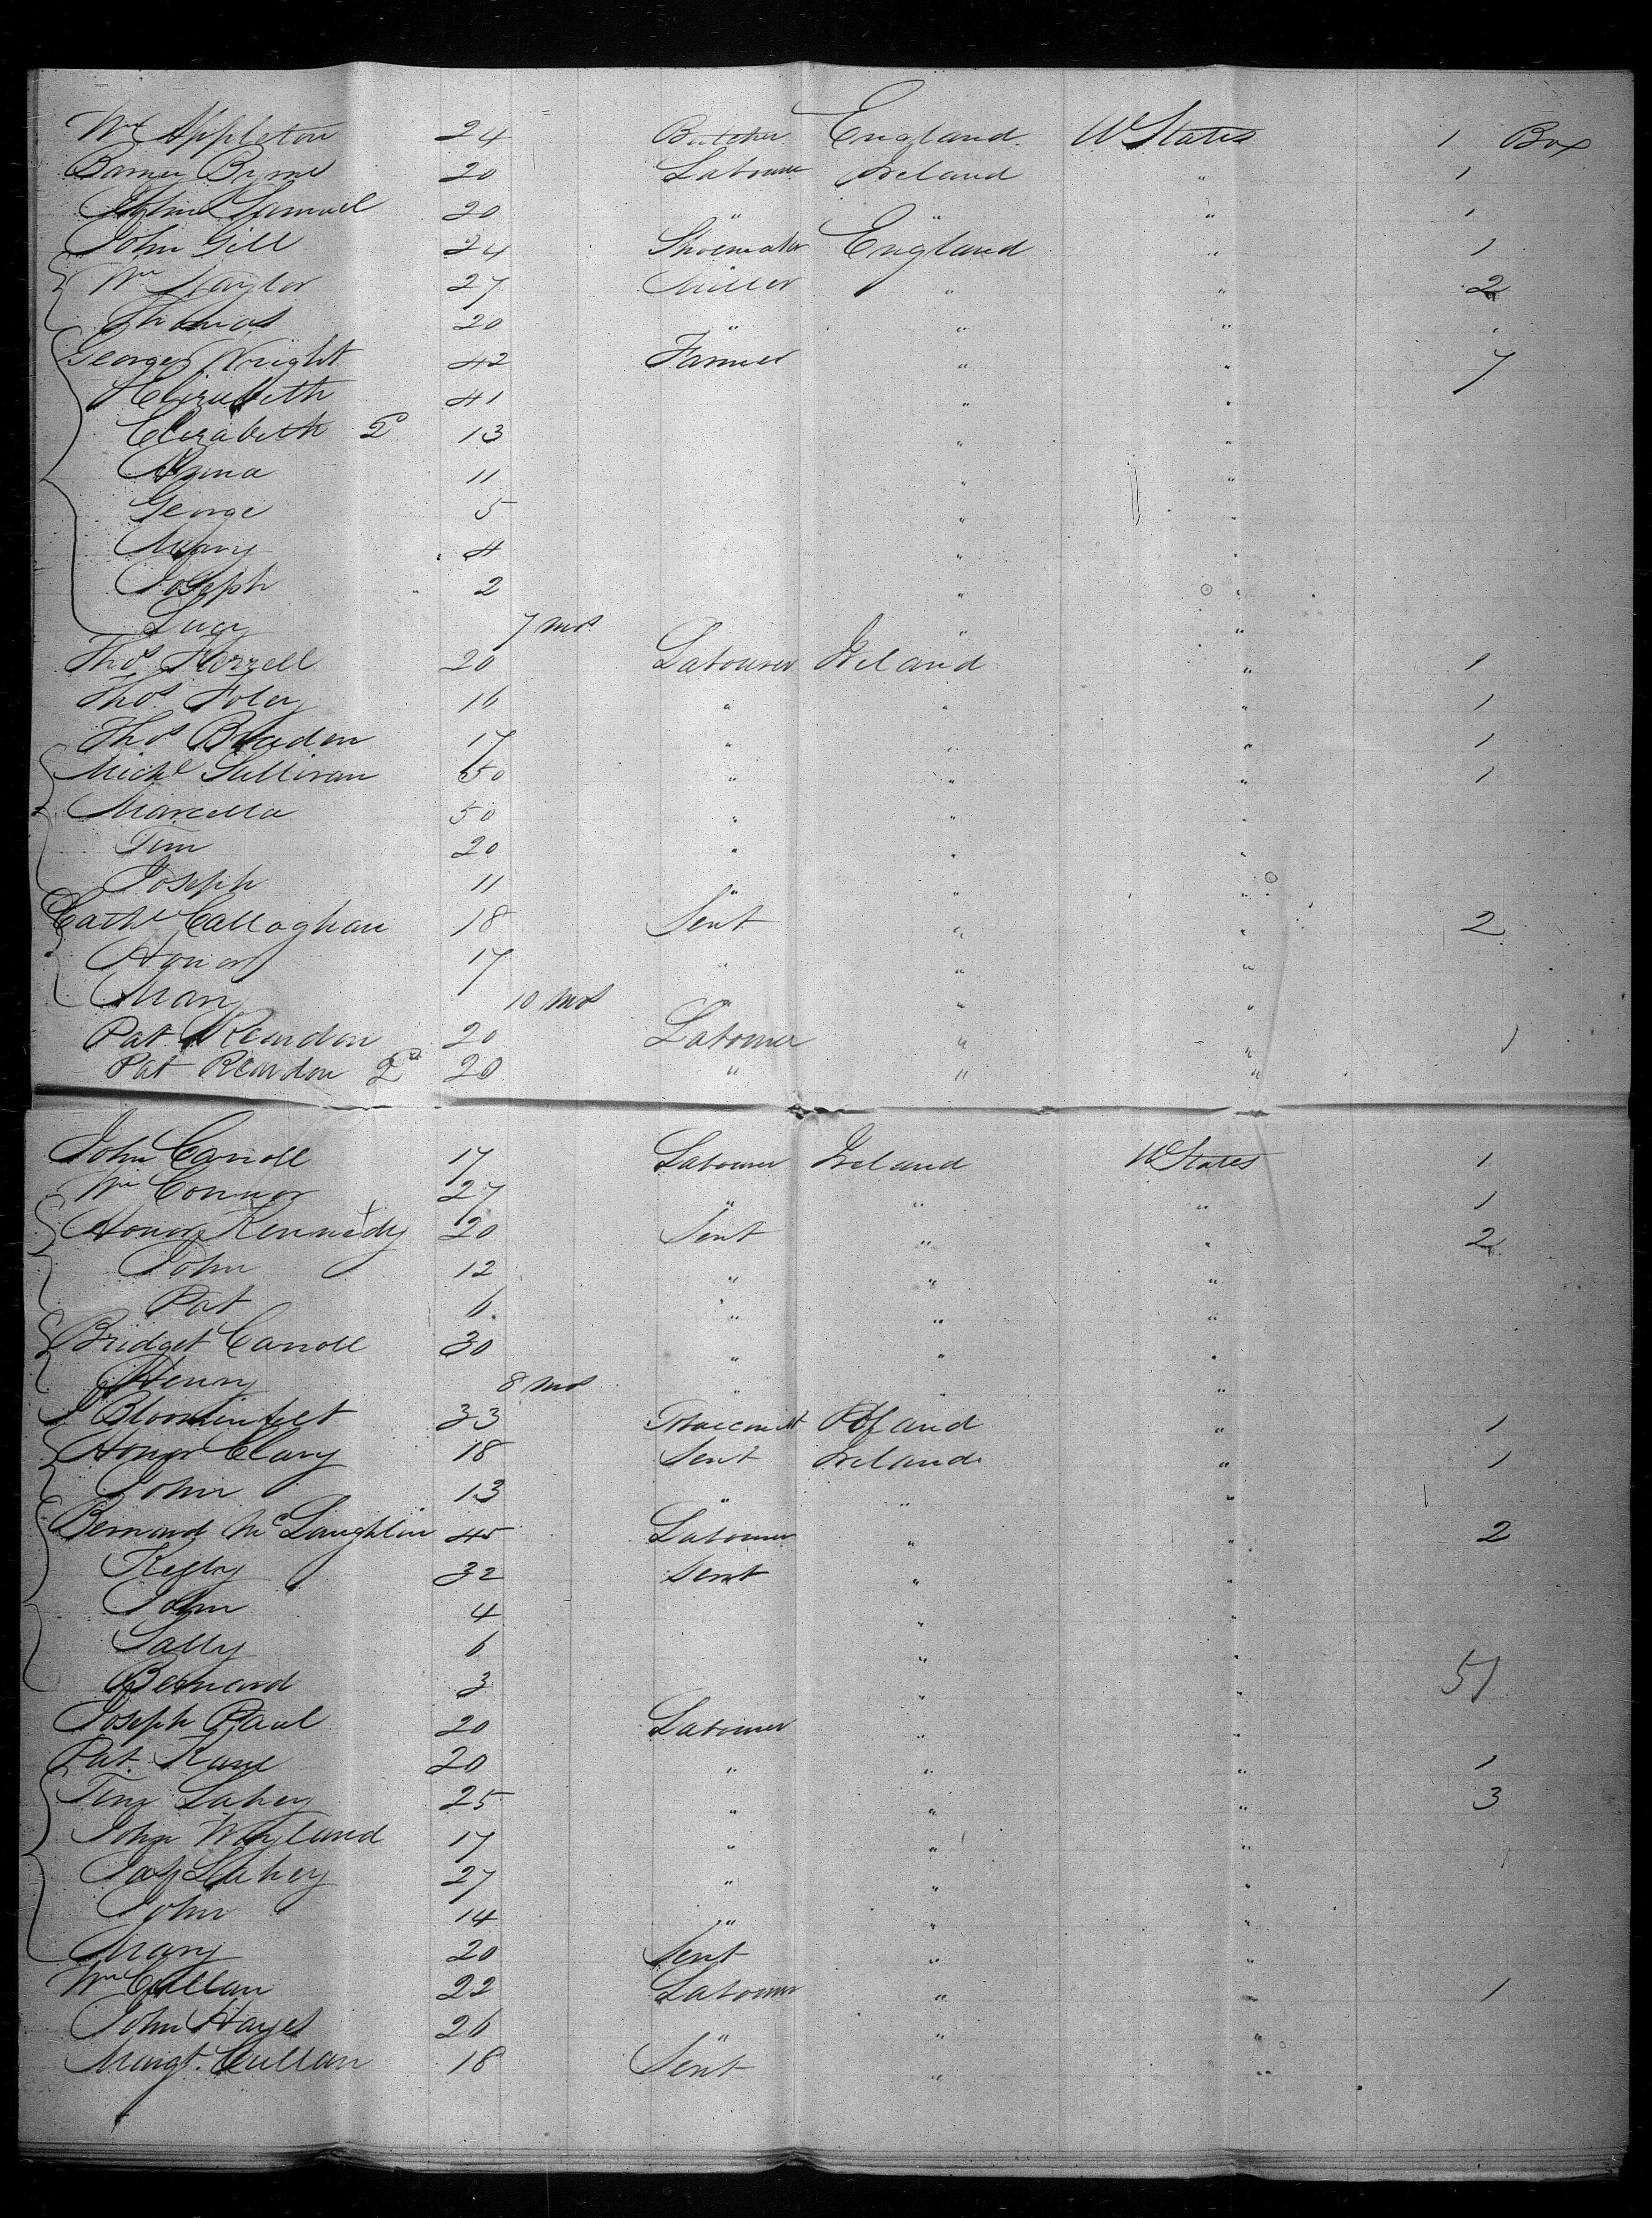 Wm Appleton 24 Butcher England U States 1 Box
Barney Byrne 20 Labourer Ireland " 1
Samuel 20 " " " 1
John Gill 24 Shoemaker England " 1
Wm Naylor 27 Miller " " 2
Thomas 20 " " " "
George Wright 42 Farmer " " 7
Elizabeth 41 " "
Elizabeth 2d 13 " "
Anna 11 " "
George 5 " "
Mary 4 " "
Joseph 2 " "
Lucy 7 mos " "
Thos 20 Labourer Ireland " 1
Thos Foley 16 " " " 1
Thos 17 " " " 1
Michl Sullivan 50 " " " 1
Marcella 50 " " "
Tim 20 " " "
Joseph 11 " " "
Cathe Callaghan 18 Sert " " 2
Honor 17 " " "
Mary 10 mos " " "
Pat Reardon 20 Labourer " " 1
Pat Reardon 2d 20 " " "
John Carroll 17 Labourer Ireland U States 1
Wm Connor 27 " " " 1
Honor Kennedy 20 Sert " " 2
John 12 " " "
Pat 6 " " "
Bridget Carroll 30 " " "
Henry 8 mos " " "
Bloominfelt 33 Tobacconist Poland " 1
Honor Clary 18 Sert Ireland " 1
John 13 " " "
Bernard McLaughlin 45 Labourer " " 2
Kelly 32 Sert " "
John 4 " "
Sally 6 " "
Bernard 3 " " 51
Joseph Paul 20 Labourer " "
Pat Kane 20 " " " 1
Tim Lahey 25 " " " 3
John Wayland 17 " " "
Jas Lahey 27 " " "
John 14 " " "
Mary 20 Sert " "
Wm Cullan 22 Labourer " " 1
John Hayes 26 " " "
Margt. Cullan 18 Sert " "